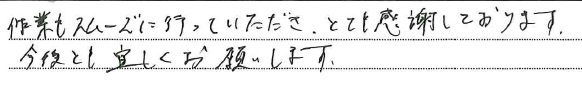 作業もスムーズに行っていただき、とても感謝しております。
今後とも宜しくお願いします。